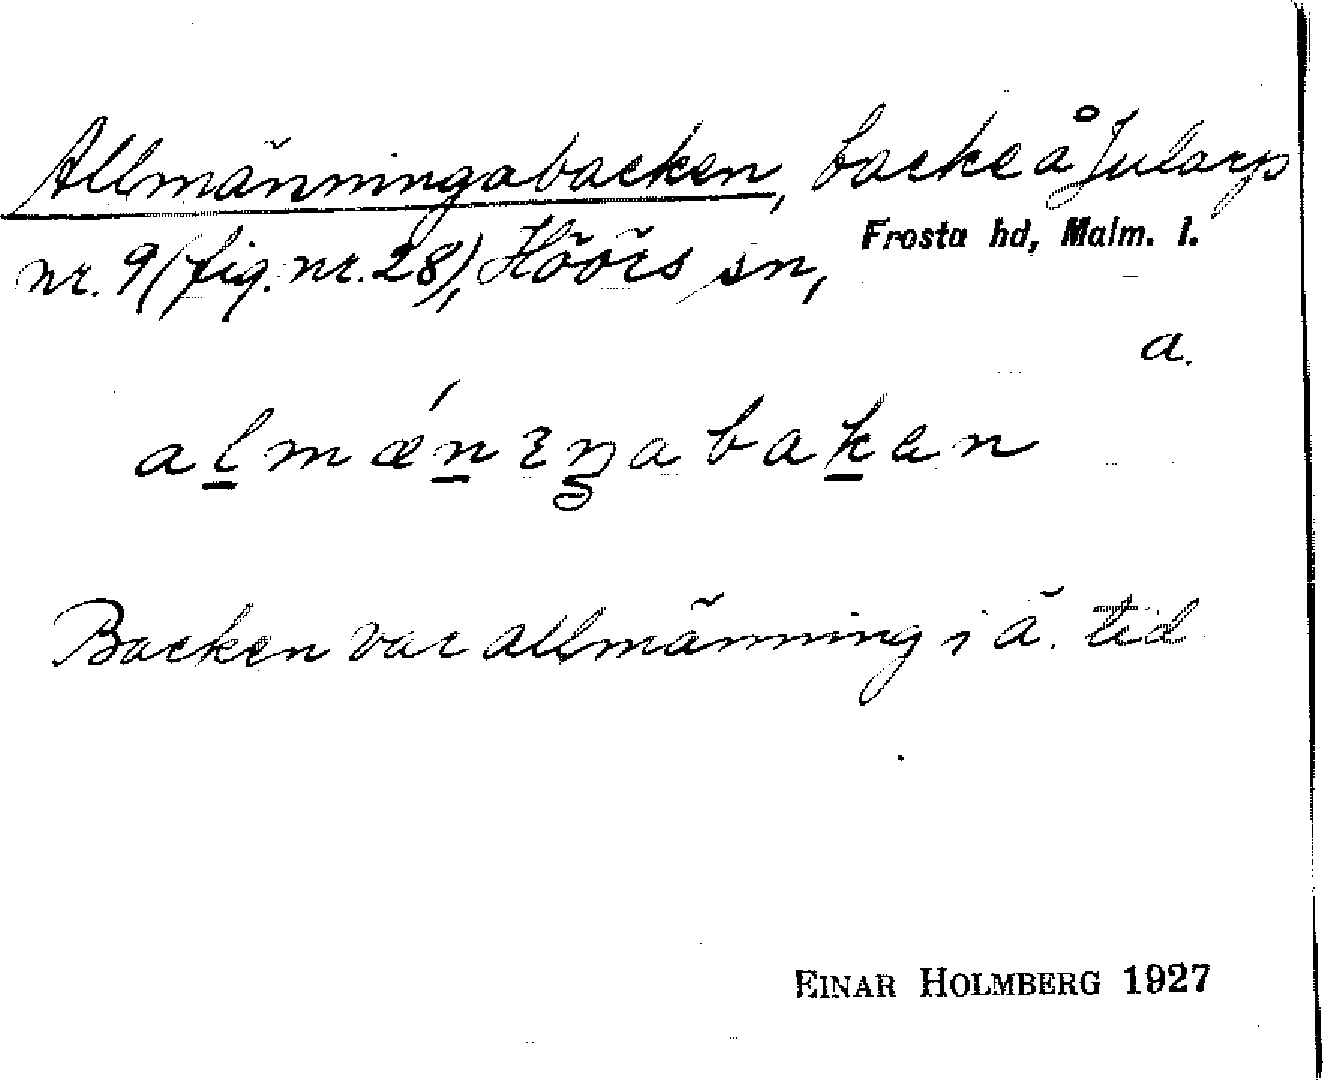 Allmänningabacken, backe å Jularp
nr. 9 (fig. nr. 28), Höörs sn, Frosta hd, Malm. l.
a.
al̲mǽn̲ɪŋabak̲en
Backen var allmänning i ä. tid
EINAR HOLMBERG 1927